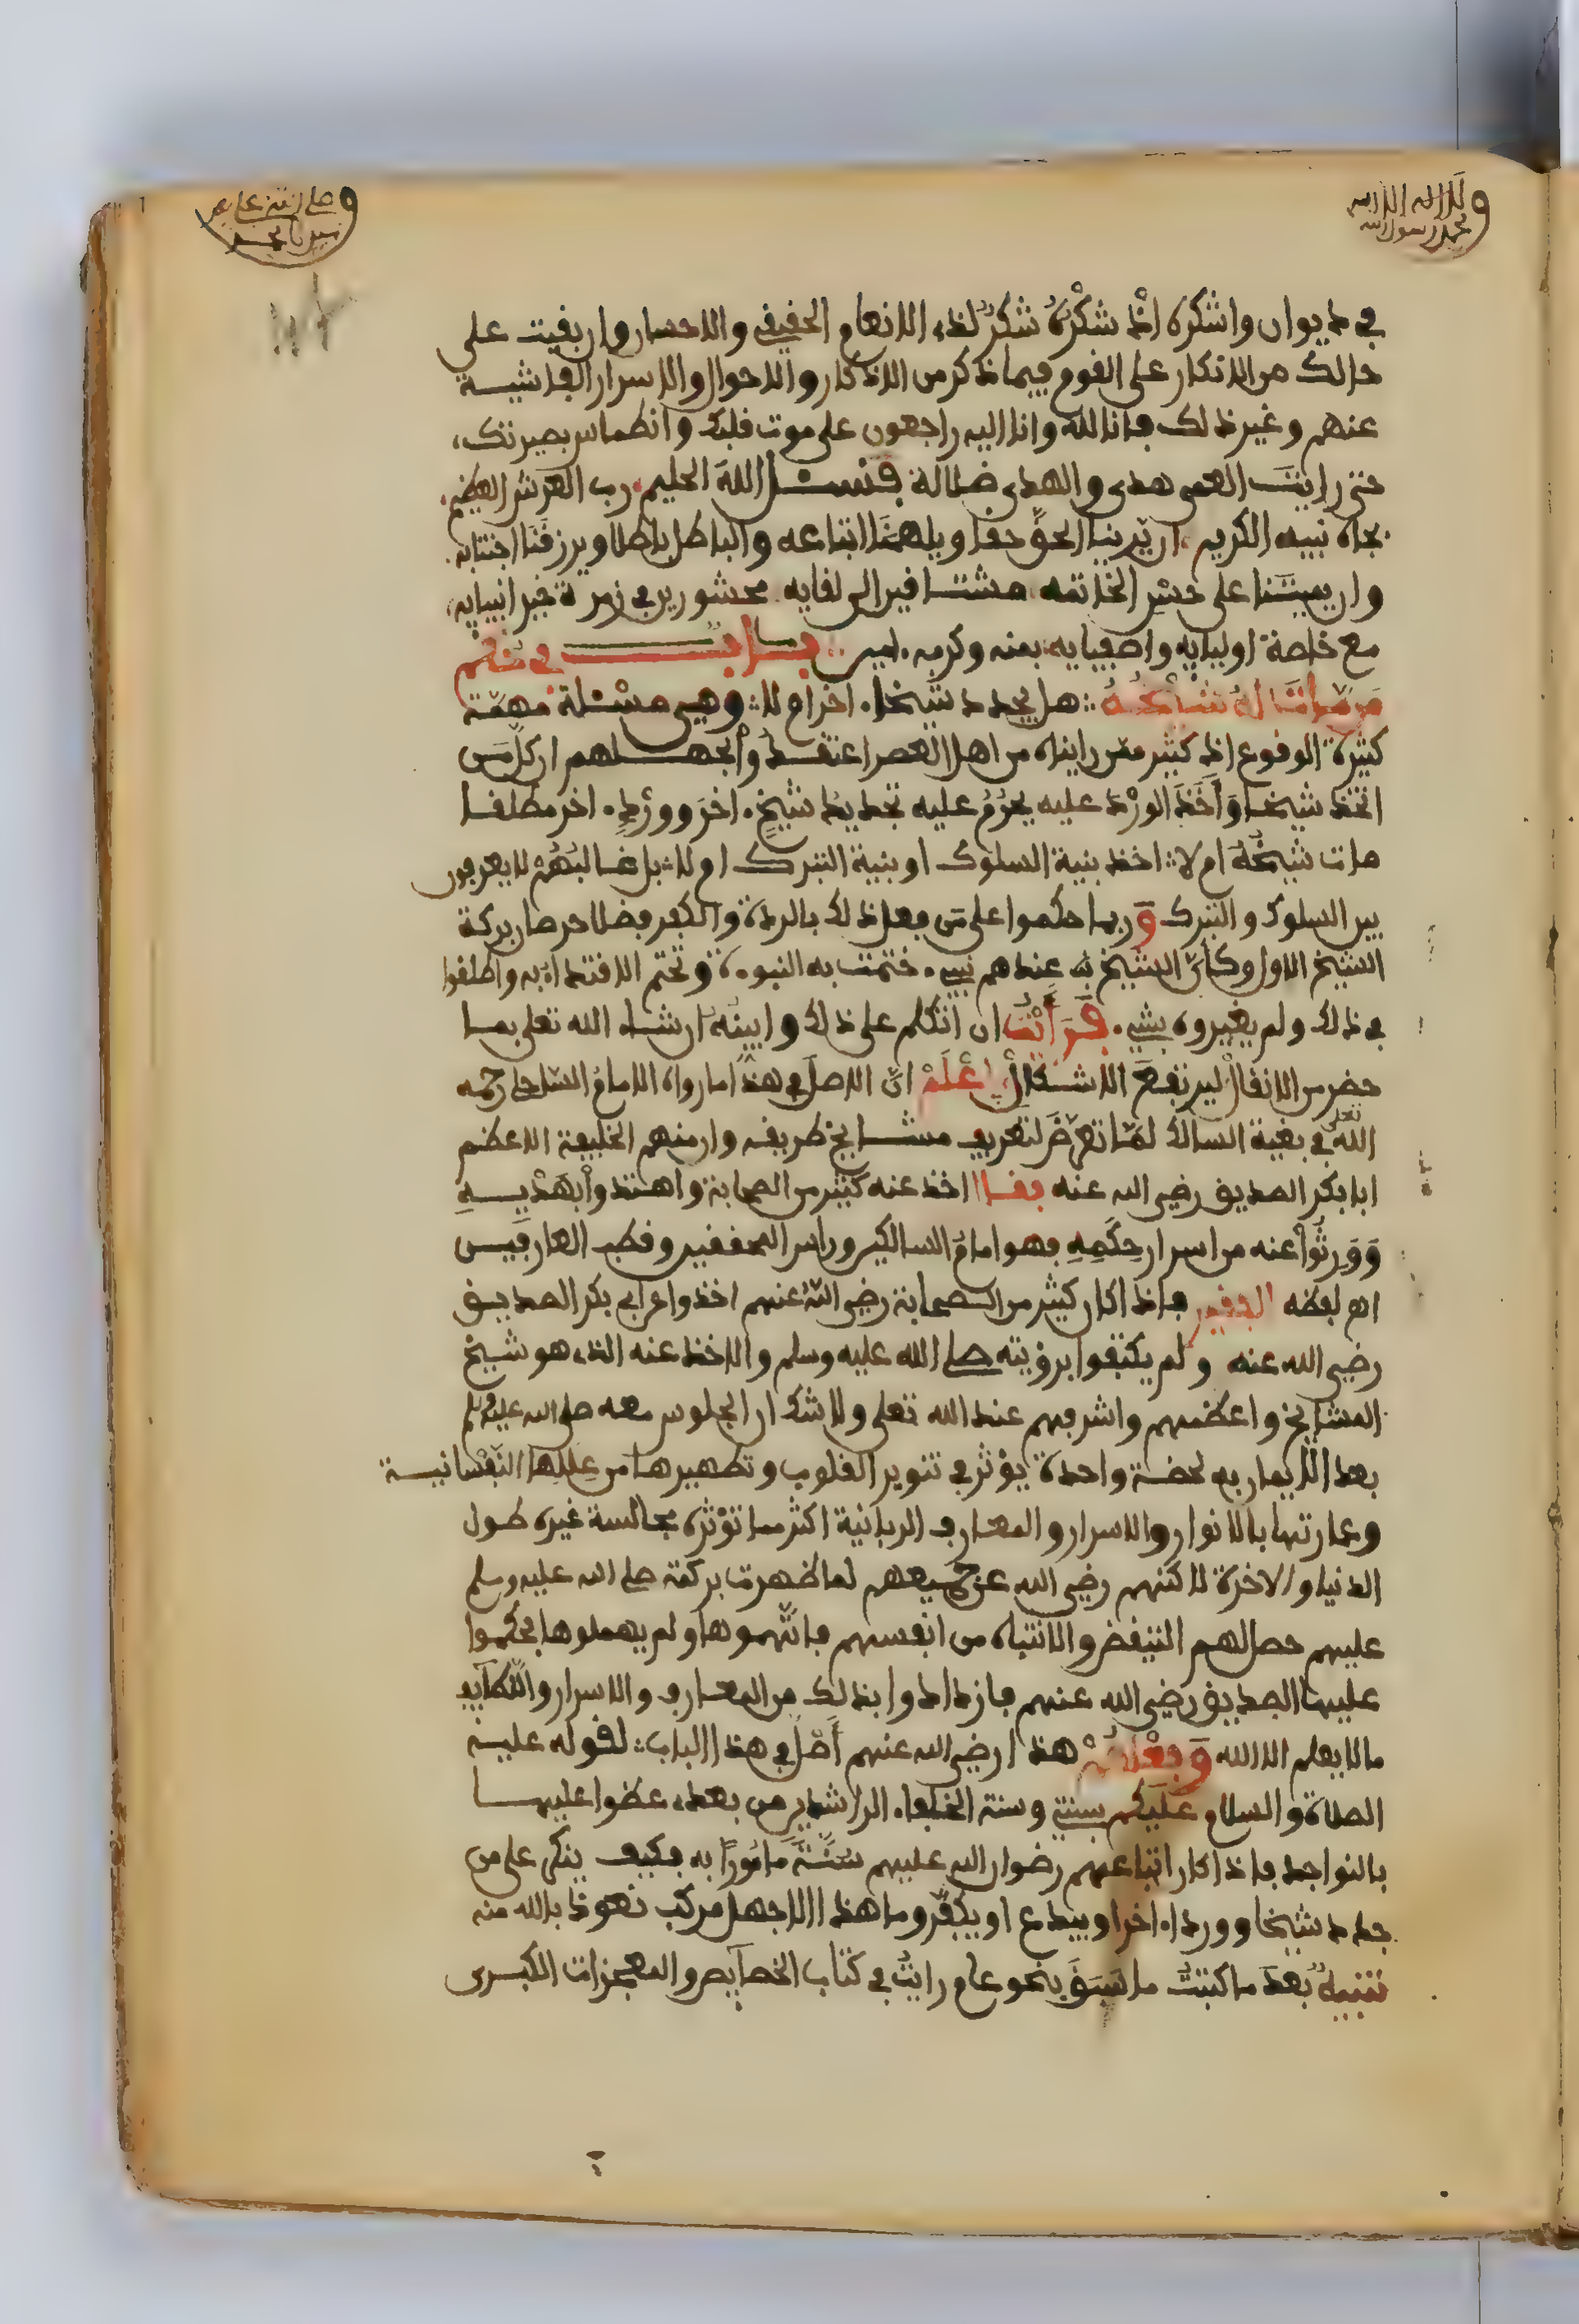 لا اله الا الله
محمد رسول الله
صلى الله على
سيدنا محمد
في ديوان واشكره اذ شكره شكر لذي الانعام الحقيقي والاحسان وان بقيت على
حالك من الانكار على القوم فيما ذكر من الاذكار والاحوال والاسرار الفاشية
عنهم وغير ذلك فانا لله وانا اليه راجعون على موت قلبك وانطماس بصيرتك،
حتى رايت العمى هدى والهدى ضلالة فنسئل الله الحليم، رب العرش العظيم،
بجاه نبيه الكريم، ان يرينا الحق حقا ويلهمنا اتباعه والباطل باطلا ويرزقنا اجتنابه.
وان يميتنا على حسن الخاتمه مشتافين الى لقايه. محشورين في زمرة خير انبيايه،
مع خاصة اوليايه واصفيايه بمنه وكرمه. امين .. باب في حكم
من مات له شيخه :: هل يجدد شيخا. اخر ام لا: وهي مسئلة مهمة
كثيرة الوقوع اذ كثير ممن رايناه من اهل العصر اعتقدوا بجهلهم ان كل من
اتخذ شيخا واخذ الورد عليه يحرم عليه تجديد شيخ. اخر وورد. اخر مطلقا
مات شيخه ام لا: اخذ بنية السلوك او بنية التبرك ام لا: بل غالبهم لا يعرفون
بين السلوك والتبرك وربما حكموا على من فعل ذلك بالردة والكفر فضلا حرمان بركة
الشيخ الاول وكان الشيخ به عندهم نبي. ختمت به النبوءة وتختم الاقتداء به واطلقوا
في ذلك ولم يقيدوه بشيء. فرأيت ان اتكلم على ذلك وابينه ان شاء الله تعلى بما
حضر من الانقال ليرتفع الاشكال اعلم ان الاصل في هذا ما رواه الامام الساحلي رحمه
الله تعلى في بغية السالك لما تعرض لتعريف مشايخ طريقه وان منهم الخليفة الاعظم
ابا بكر الصديق رضي الله عنه فقال اخذ عنه كثير من الصحابة واهتدوا بهديه
وورثوا عنه من اسرار حكمه فهو امام السالكين وراس المحققين وقطب العارفين
اهـ لفظه الفقير فاذا كان كثير من الصحابة رضي الله عنهم اخذوا عن ابي بكر الصديق
رضي الله عنه ولم يكتفوا برؤيته صلى الله عليه وسلم والاخذ عنه الذي هو شيخ
المشايخ واعظمهم واشرفهم عند الله تعلى ولا شك ان الجلوس معه صلى الله عليه وسلم
بعد الايمان به لحضة واحدة يؤثر في تنوير القلوب وتطهيرها من عللها النفسانية
وعمارتها بالانوار والاسرار والمعارف الربانية اكثر مما تؤثره مجالسة غيره طول
الدنيا والاخرة لاكنهم رضي الله عن جميعهم لما ظهرت بركته صلى الله عليه وسلم
عليهم حصل لهم التيقض والانتباه من انفسهم فاتهموها ولم يهملوها فحكموا
عليها الصديق رضي الله عنهم فازدادوا بذلك من المعارف والاسرار واللطايف
ما لا يعلم الا الله وفعلهم هذا رضي الله عنهم أصل في هذا الباب: لقوله عليه
الصلاة والسلام عليكم بسنتي وسنة الخلفاء الراشدين من بعدي عظوا عليها
بالنواجد فاذا كان اتباعهم رضوان الله عليهم سنة مامورا به فكيف ينكر على من
جدد شيخا ووردا. اخر او يبدع او يكفر وما هذا الا جهل مركب نعوذ بالله منه
تنبيه بعد ما كتبت ما سبق بنحو عام رايت في كتاب الخصايص والمعجزات الكبرى